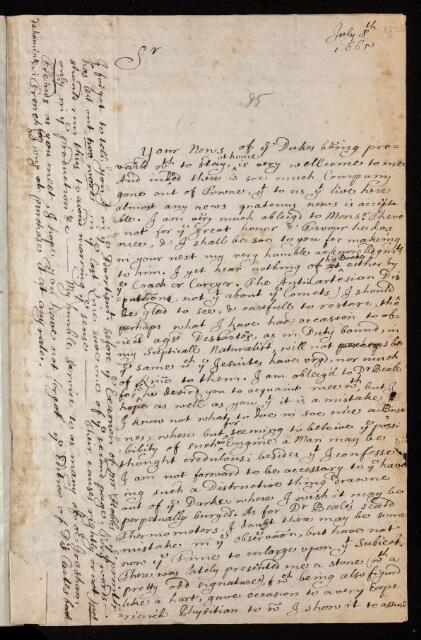 July 8th
1665
Sr
95
Your News of ye Dukes being pre-
vaild wth to stay at home is very wellcome to me
And indeed there is soe much Company
gone out of Towne, yt to us yt live here
almost any news quatenus news is accepta-
ble. I am very much obliegd to Monsr Theve
not for ye great honor & Favour he does
mee, & I shall be soe to you for making
in your next my very humble acknowledgmts
to him. I yet hear nothing of either by
ye Coach or Carryer. The Antilartesian Dis-
putations (not yt about ye Comets) I should
be glad to see, & carefully to restore, tho
perhaps what I have had occasion to ob-
ject agst Descartes, as in Duty bound, in
my Scepticall Naturalist, will not be
ye same wch ye Jesuites have urgd, nor much
of Kinn to them. I am obliegd to Dr Beale
for ye desire you to acquaint mee wth, but I
hope as well as you yt it is a mistake
I know not what to doe in soe nice a Busi
nes, where but seeming to beleive ye possi
bility of such an Engine a Man may be
thought credulous: besides yt I confesse
I am not forward to be accessory to ye hav
ing such a Distructive thing drawne
out of ye Darke where I wish it may be
perpetually buryd. As for Dr Beales seald
Thermometers, I doubt there may be some
mistake in ye observaon, but have not
now ye time to enlarge upon yt Subject.
There was lately presented me a stone (wth a
pretty odd signature) wch being also figurd
like a hart, gave occasion to a very Expe
rienc'd Physitian to wm I show'd it to assure
I forgot to tell you yt in ye Advertismt before ye
has left out two words
stands in thus to avoid
only in ye production &c
My humble service to as many of ye Gresham
Freinds as you meet, I hope you have not forgot ye